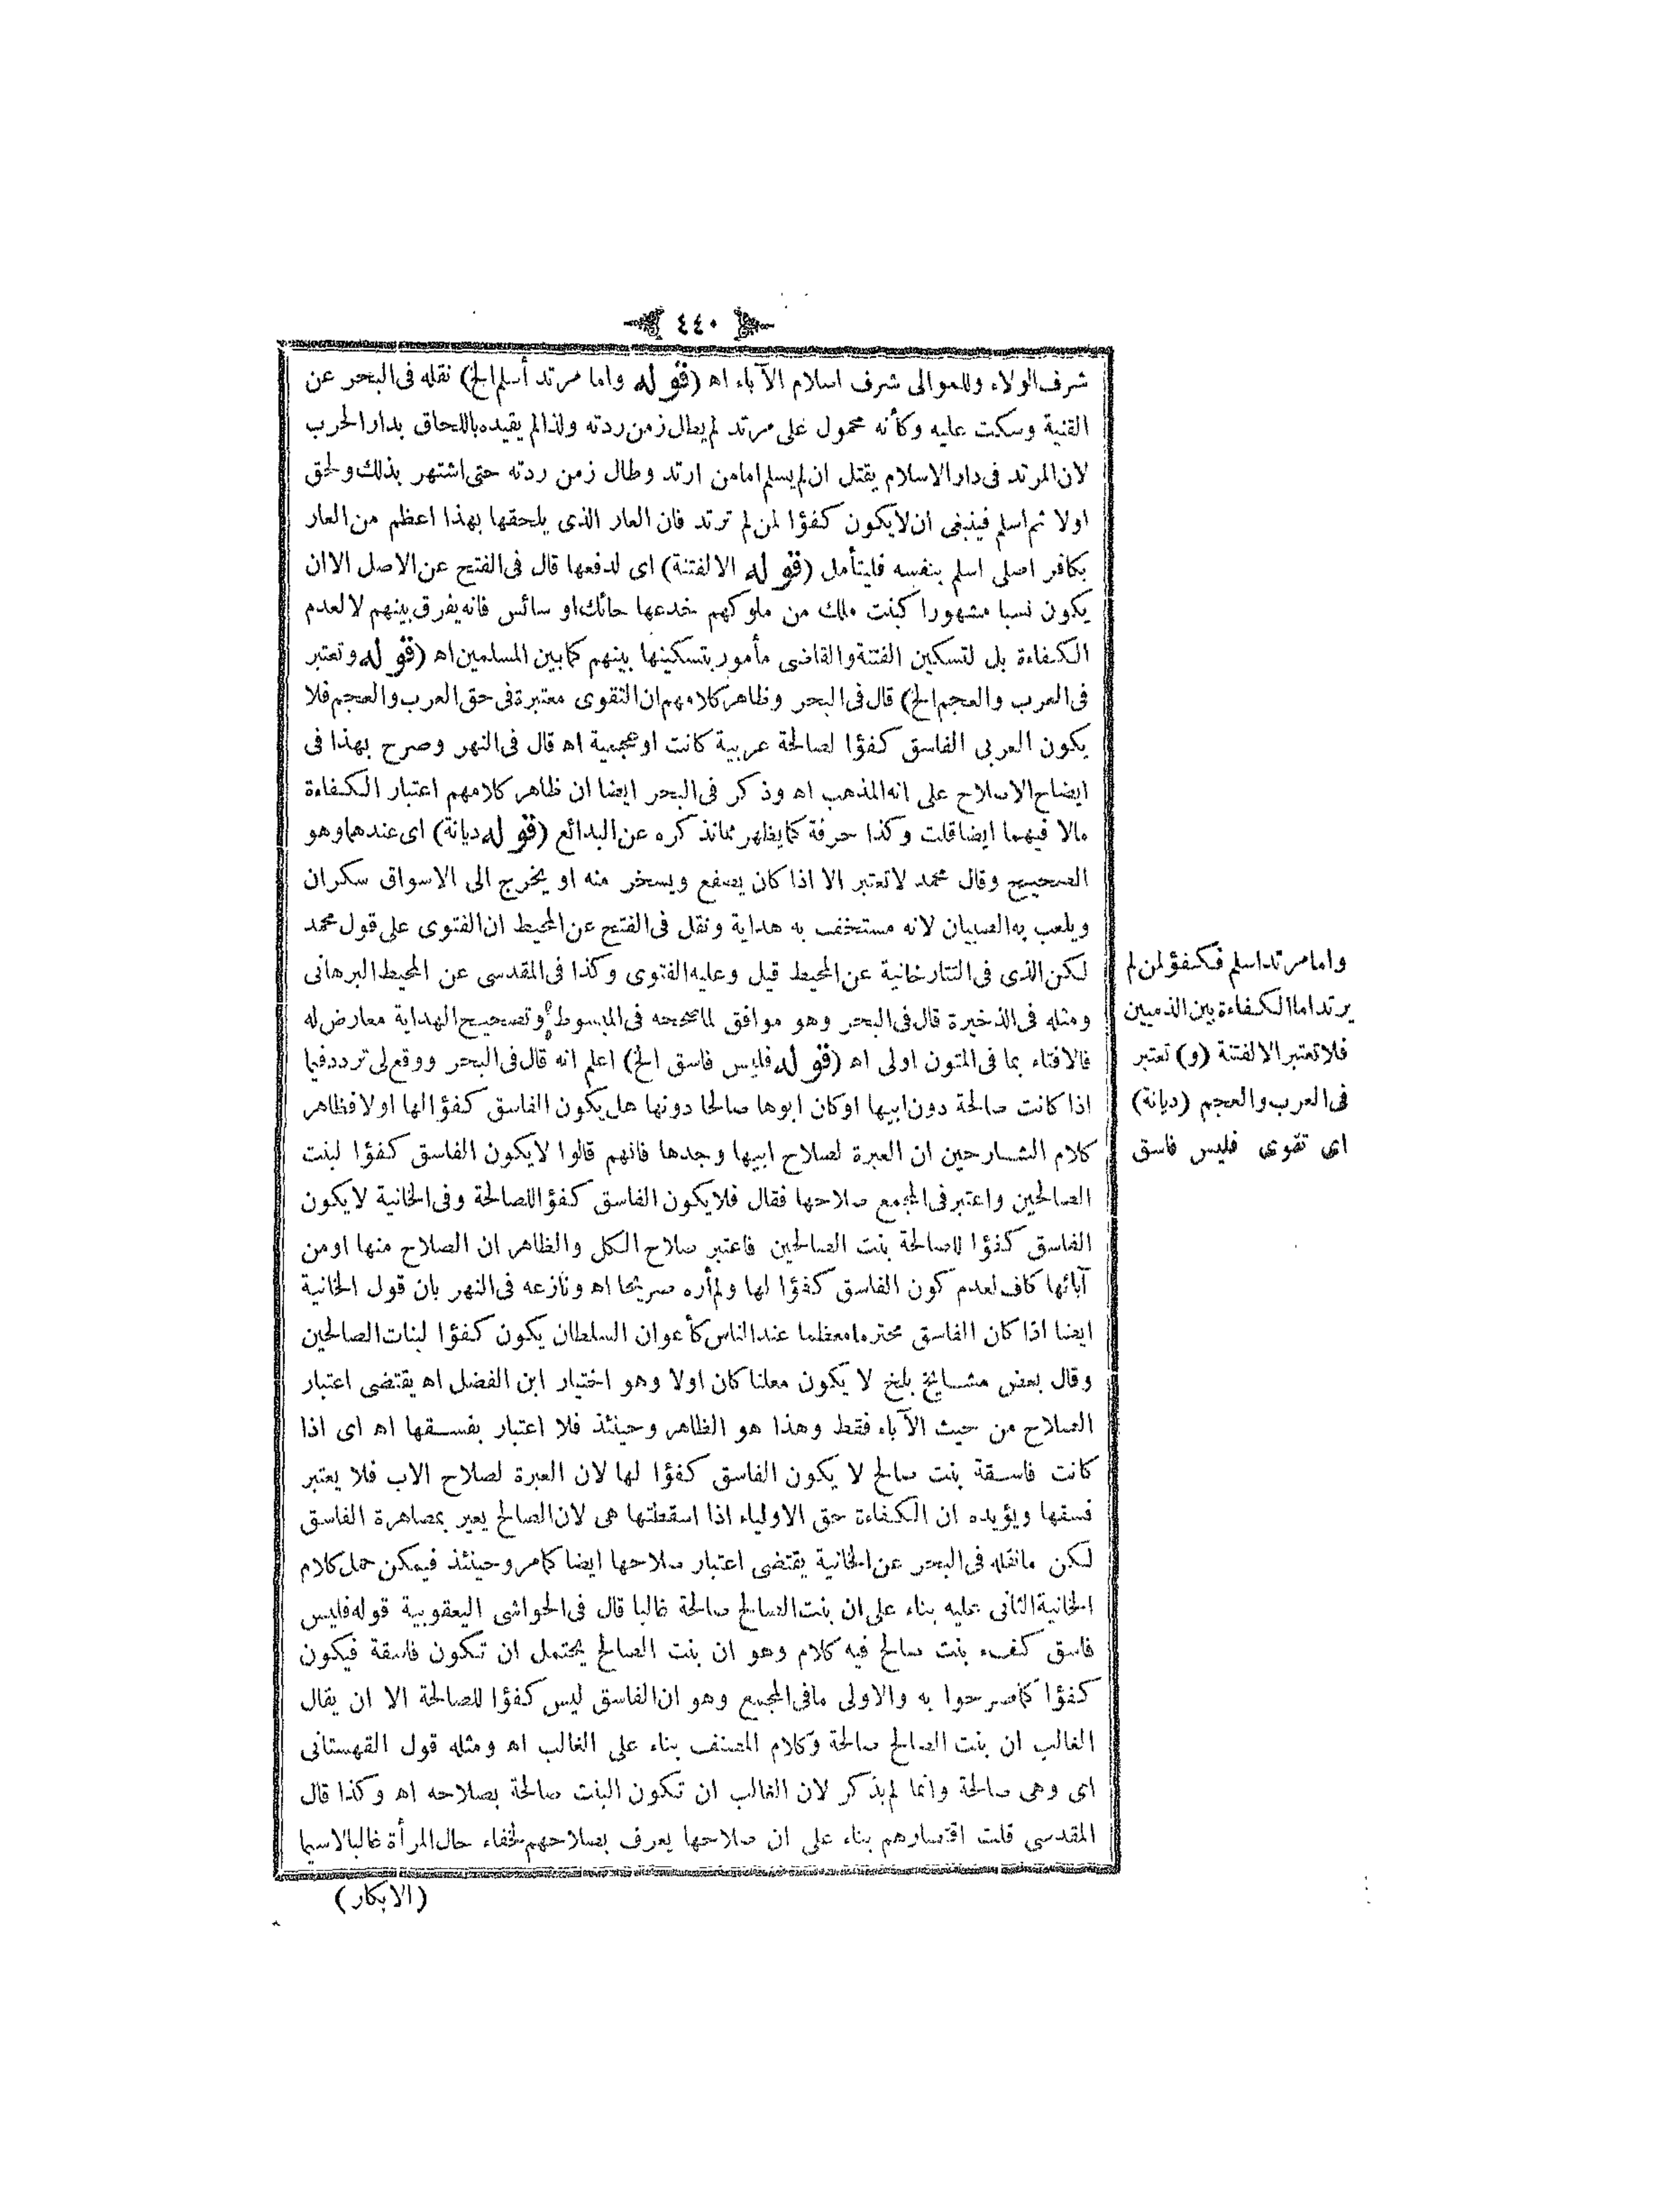 ٤٤٠
شرف الولاء وللموالى شرف اسلام الآباء اه (قوله واما مرتد أسلم الخ) نقله فى البحر عن
القنية وسكت عليه وكأنه محمول على مرتد لم يطل زمن ردته ولذا لم يقيده باللحاق بدار الحرب
لان المرتد فى دار الاسلام يقتل ان لم يسلم اما من ارتد وطال زمن ردته حتى اشتهر بذلك ولحق
اولا ثم اسلم فينبغى ان لا يكون كفؤا لمن لم ترتد فان العار الذى يلحقها بهذا اعظم من العار
بكافر اصلى اسلم بنفسه فليتأمل (قوله الا لفتنة) اى لدفعها قال فى الفتح عن الاصل الا ان
يكون نسبا مشهورا كبنت ملك من ملوكهم خدعها حائك او سائس فانه يفرق بينهم لا لعدم
الكفاءة بل لتسكين الفتنة والقاضى مأمور بتسكينها بينهم كما بين المسلمين اه (قوله وتعتبر
فى العرب والعجم الخ) قال فى البحر وظاهر كلامهم ان التقوى معتبرة فى حق العرب والعجم فلا
يكون العربى الفاسق كفؤا لصالحة عربية كانت او عجمية اه قال فى النهر وصرح بهذا فى
ايضاح الاصلاح على انه المذهب اه وذكر فى البحر ايضا ان ظاهر كلامهم اعتبار الكفاءة
مالا فيهما ايضا قلت وكذا حرفة كما يظهر مما نذكره عن البدائع (قوله ديانة) اى عندهما وهو
الصحيح وقال محمد لا تعتبر الا اذا كان يصفع ويسخر منه او يخرج الى الاسواق سكران
ويلعب به الصبيان لانه مستخف به هداية ونقل فى الفتح عن المحيط ان الفتوى على قول محمد
لكن الذى فى التتارخانية عن المحيط قيل وعليه الفتوى وكذا فى المقدسى عن المحيط البرهانى
ومثله فى الذخيرة قال فى البحر وهو موافق لما صححه فى المبسوط وتصحيح الهداية معارض له
فالافتاء بما فى المتون اولى اه (قوله فليس فاسق الخ) اعلم انه قال فى البحر ووقع لى تردد فيما
اذا كانت صالحة دون ابيها او كان ابوها صالحا دونها هل يكون الفاسق كفؤا لها او لا فظاهر
كلام الشارحين ان العبرة لصلاح ابيها وجدها فانهم قالوا لا يكون الفاسق كفؤا لبنت
الصالحين واعتبر فى المجمع صلاحها فقال فلا يكون الفاسق كفؤا للصالحة وفى الخانية لا يكون
الفاسق كفؤا للصالحة بنت الصالحين فاعتبر صلاح الكل والظاهر ان الصلاح منها او من
آبائها كاف لعدم كون الفاسق كفؤا لها ولم أره صريحا اه ونازعه فى النهر بان قول الخانية
ايضا اذا كان الفاسق محترما معظما عند الناس كأعوان السلطان يكون كفؤا لبنات الصالحين
وقال بعض مشايخ بلخ لا يكون معلنا كان اولا وهو اختيار ابن الفضل اه يقتضى اعتبار
الصلاح من حيث الآباء فقط وهذا هو الظاهر وحينئذ فلا اعتبار بفسقها اه اى اذا
كانت فاسقة بنت صالح لا يكون الفاسق كفؤا لها لان العبرة لصلاح الاب فلا يعتبر
فسقها ويؤيده ان الكفاءة حق الاولياء اذا اسقطتها هى لان الصالح يعير بمصاهرة الفاسق
لكن ما نقله فى البحر عن الخانية يقتضى اعتبار صلاحها ايضا كما مر وحينئذ فيمكن حمل كلام
الخانية الثانى عليه بناء على ان بنت الصالح صالحة غالبا قال فى الحواشى اليعقوبية قوله فليس
فاسق كفء بنت صالح فيه كلام وهو ان بنت الصالح يحتمل ان تكون فاسقة فيكون
كفؤا كما صرحوا به والاولى ما فى المجمع وهو ان الفاسق ليس كفؤا للصالحة الا ان يقال
الغالب ان بنت الصالح صالحة وكلام المصنف بناء على الغالب اه ومثله قول القهستانى
اى وهى صالحة وانما لم يذكر لان الغالب ان تكون البنت صالحة بصلاحه اه وكذا قال
المقدسى قلت اقتصارهم بناء على ان صلاحها يعرف بصلاحهم لخفاء حال المرأة غالبا لا سيما
(الابكار)
واما مرتد اسلم فكفؤ لمن لم
يرتد اما الكفاءة بين الذميين
فلا تعتبر الا لفتنة (و) تعتبر
فى العرب والعجم (ديانة)
اى تقوى فليس فاسق